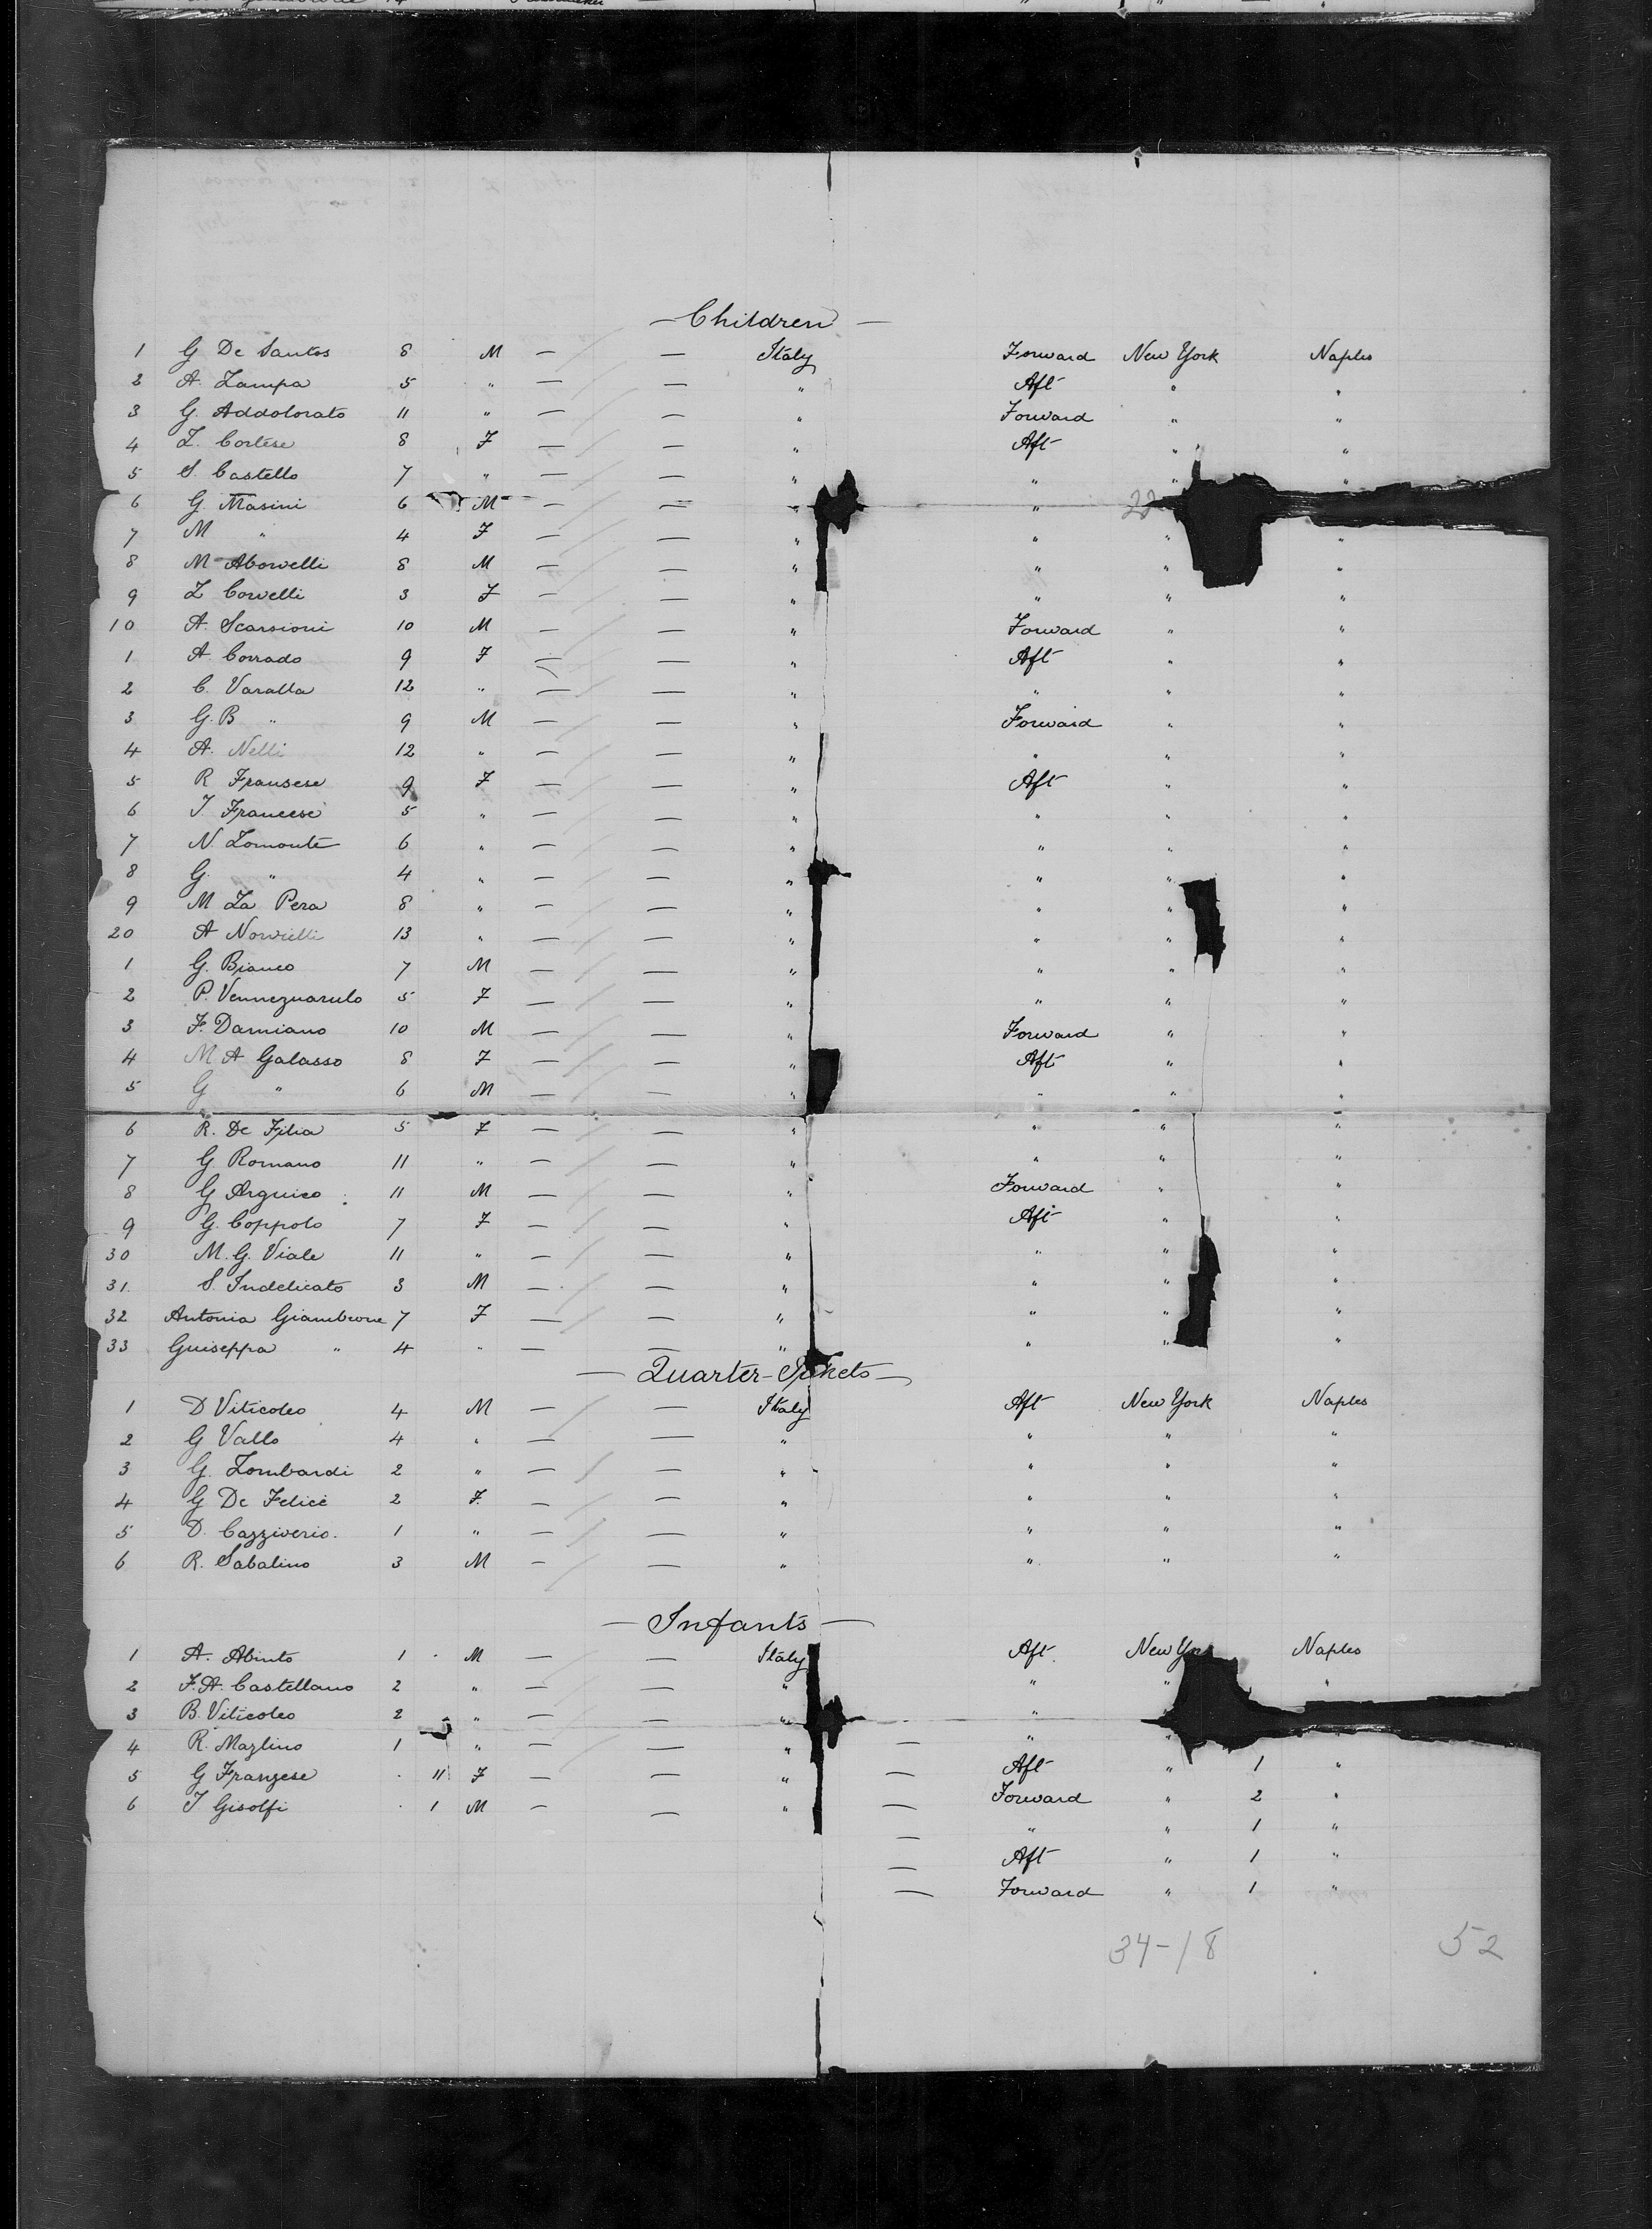 — Children —
1 G De Santos 8 M — — Italy Forward New York Naples
2 A. Zampa 5 " — — " Aft " "
3 G. Addolorato 11 " — — " Forward " "
4 L. Cortese 8 F — — " Aft " "
5 S. Castello 7 " — — " " " "
6 G. Masini 6 M — — " "
7 M " 4 F — — " " " "
8 M 8 M — — " " " "
9 L Corvelli 3 F — — " " " "
10 A. Scarsioni 10 M — — " Forward " "
1 A. Corrado 9 F — — " Aft " "
2 C. Varalla 12 " — — " " " "
3 G. B " 9 M — — " Forward " "
4 A. Nelli 12 " — — " " " "
5 R Fransese 9 F — — " Aft " "
6 J Francese 5 " — — " " " "
7 N. Lomonte 6 " — — " " " "
8 G. " 4 " — — " " " "
9 M La Pera 8 " — — " " " "
20 A 13 " — — " " " "
1 G. Bianco 7 M — — " " " "
2 P. 5 F — — " " " "
3 F. Damiano 10 M — — " Forward " "
4 M. A Galasso 8 F — — " Aft " "
5 G " 6 M — — " " " "
6 R. De Filia 5 F — — " " " "
7 G. Romano 11 " — — " " " "
8 G Arguico 11 M — — " Forward " "
9 G. Coppolo 7 F — — " Aft " "
30 M. G. Viale 11 " — — " " " "
31. S. Indelicato 3 M — — " " " "
32 Antonia Giambrone 7 F — — " " " "
33 Guiseppa " 4 " — — " " " "
— Quarter-Tickets —
1 D Viticoleo 4 M — — Italy Aft New York Naples
2 G Vallo 4 " — — " " " "
3 G. Lombardi 2 " — — " " " "
4 G De Felice 2 F. — — " " " "
5 D. Cazziverio. 1 " — — " " " "
6 R. Sabalino 3 M — — " " " "
— Infants —
1 A. Abinto 1 M — — Italy Aft. New York Naples
2 F. A. Castellano 2 " — — " " " "
3 B. Viticoleo 2 " — — " "
4 R. Mazlino 1 " — — " — " "
5 G Franzese 11 F — — " — Aft " 1 "
6 J Gisolfi 1 M — — " — Forward " 2 "
— " " 1 "
— Aft " 1 "
— Forward " 1 "
34-18 52